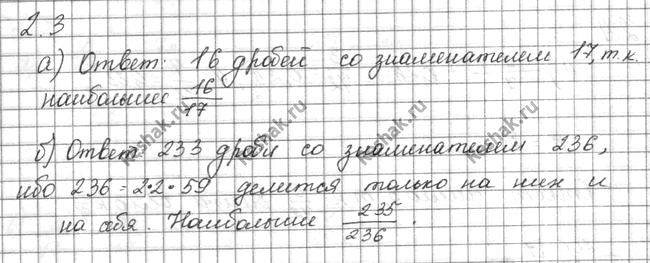 2.3
а) Ответ: 16 дробей со знаменателем 17, т.к.
наибольшее 16/17
б) Ответ 233 дроби со знаменателем 236,
ибо 236 = 2·2·59 делится только на них и
на себя. Наибольшие 235/236.
reshak.ru
reshak.ru
reshak.ru
reshak.ru